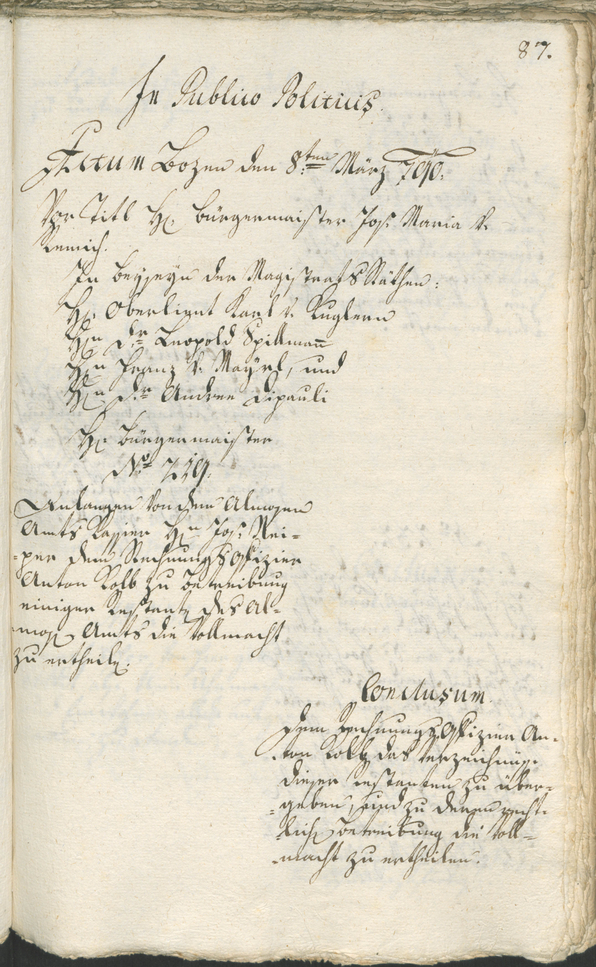 87.
In Publico Politicis
Actum Bozen den 8ten März 790.
Vor Titl H: Bürgermaister Jos: Maria v.
Remich.
In beyseyn der Magistrats Räthen:
Hn Oberlieut Karl v. Kuglern
Hn Dr Leopold Spillman
Hn Franz v. Mayrl, und
Hn Dr Andree Dipauli
H: Bürgermaister
No 219.
Anlangen von dem Almosen
Amts Kassier Hn Jos:
dem Rechnungs Offizier
Anton Kolb zu betreibung
einiger Restanz des Al-
mos: Amts die Vollmacht
zu ertheile:
Conclusum
Dem Rechnungs Offizier An-
ton Kolb das Verzeichniß
dieser restanten zu über-
geben, und zu deren recht-
lich betreibung die Voll-
macht zu ertheilen.